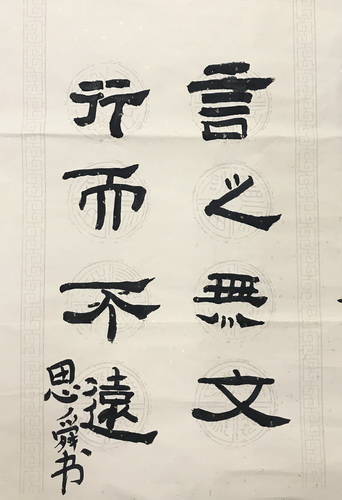 言之無文
行而不遠
思舜书